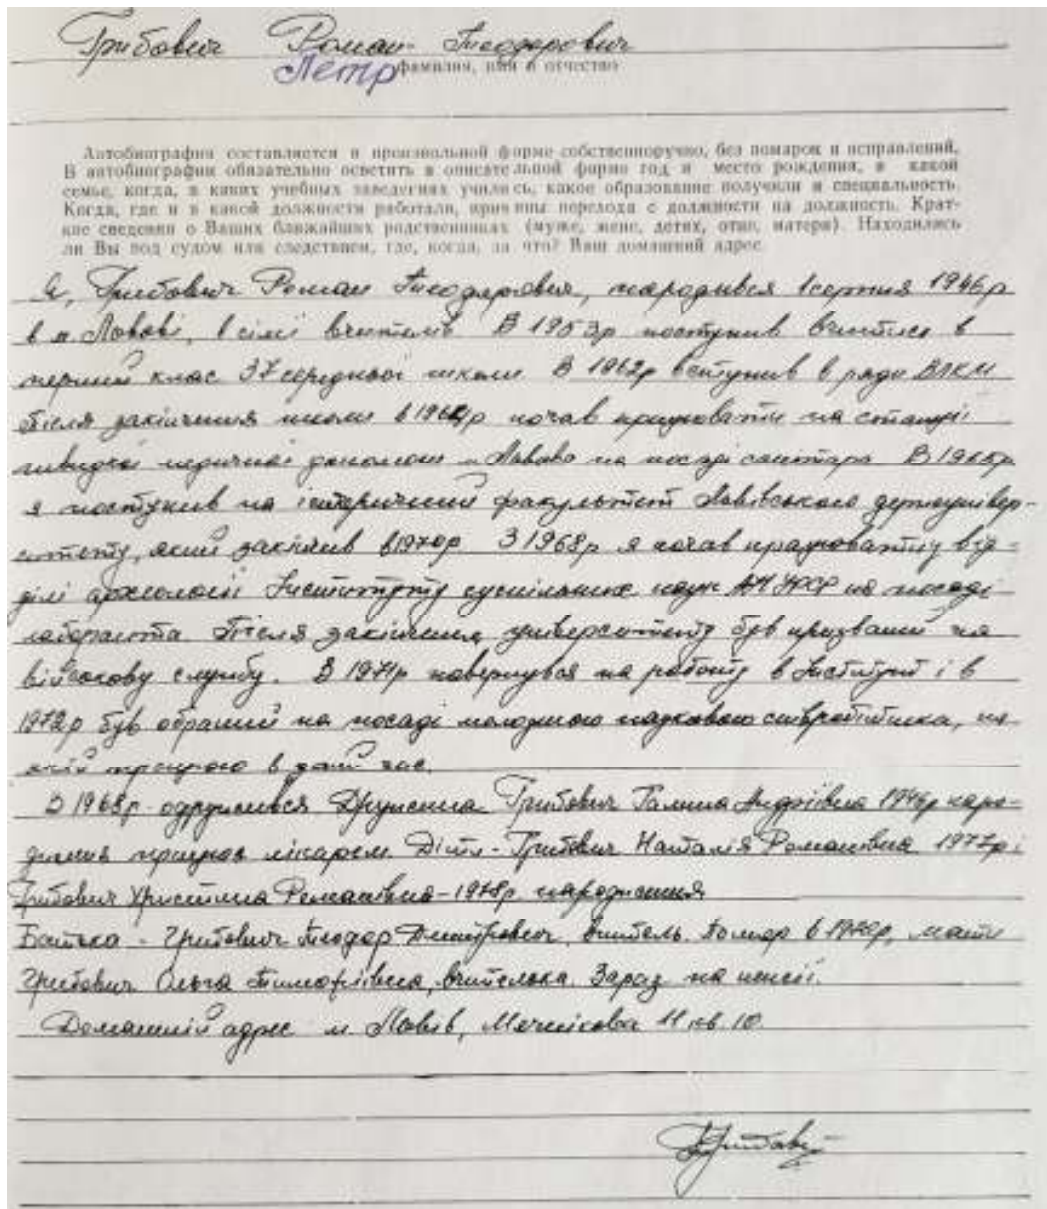 Грибович Роман Теодорович
Петр
фамилия, имя и отчество
Автобиография составляется в произвольной форме собственноручно, без помарок и исправлений.
В автобиографии обязательно осветить в описательной форме год и место рождения, в какой
семье, когда, в каких учебных заведениях учились, какое образование получили и специальность.
Когда, где и в какой должности работали, причины перехода с должности на должность. Крат-
кие сведения о Ваших ближайших родственниках (муже, жене, детях, отце, матери). Находились
ли Вы под судом или следствием, где, когда, за что? Ваш домашний адрес
Я, Грибович Роман Теодорович, народився 1 серпня 1946р
в м. Львові, в сімї вчителів В 1953р поступив вчитися в
перший клас 37 середньої школи. В 1962р вступив в ряди ВЛКСМ
Після закінчення школи в 1964р почав працювати на станції
швидкої медичної допомоги м. Львова на посаді санітара В 1965р
я поступив на історичний факультет Львівського держунівер-
ситету, який закінчив в 1970р З 1968р я почав працювати у від-
ділі археології Інституту суспільних наук АН УРСР на посаді
лаборанта Після закінчення університету був призваний на
військову службу. В 1971р повернувся на роботу в Інститут і в
1972р був обраний на посаді молодшого наукового співробітника, на
якій працюю в даний час.
В 1968р одружився Дружина Грибович Галина Андріївна 1946р наро-
дження працює лікарем. Діти - Грибович Наталія Романівна 1977р і
Грибович Христина Романівна - 1978р. народження
Батько - Грибович Теодор Дмитрович, вчитель. Помер в, мати
Грибович Ольга Тимофіївна, вчителька. Зараз на пенсії.
Домашній адрес м. Львів, Мечнікова 11 кв. 10.
Грибович